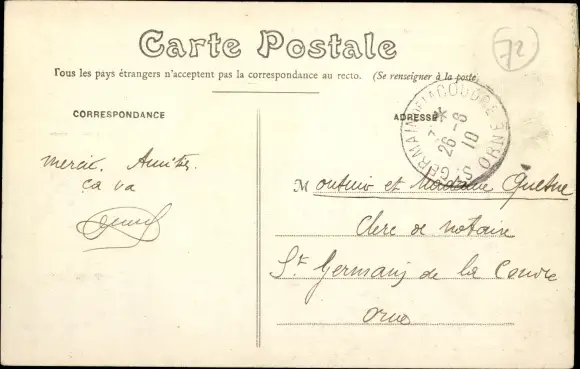 Carte Postale
72
Tous les pays étrangers n'acceptent pas la correspondance au recto. (Se renseigner à la poste)
CORRESPONDANCE
ADRESSE
St GERMAIN DE LA COUDRE ORNE
7 *
26 - 6
10
merci. Amitiés
ça va
Monsieur et Madame Quesne
Clerc de notaire
St Germain de la Coudre
Orne